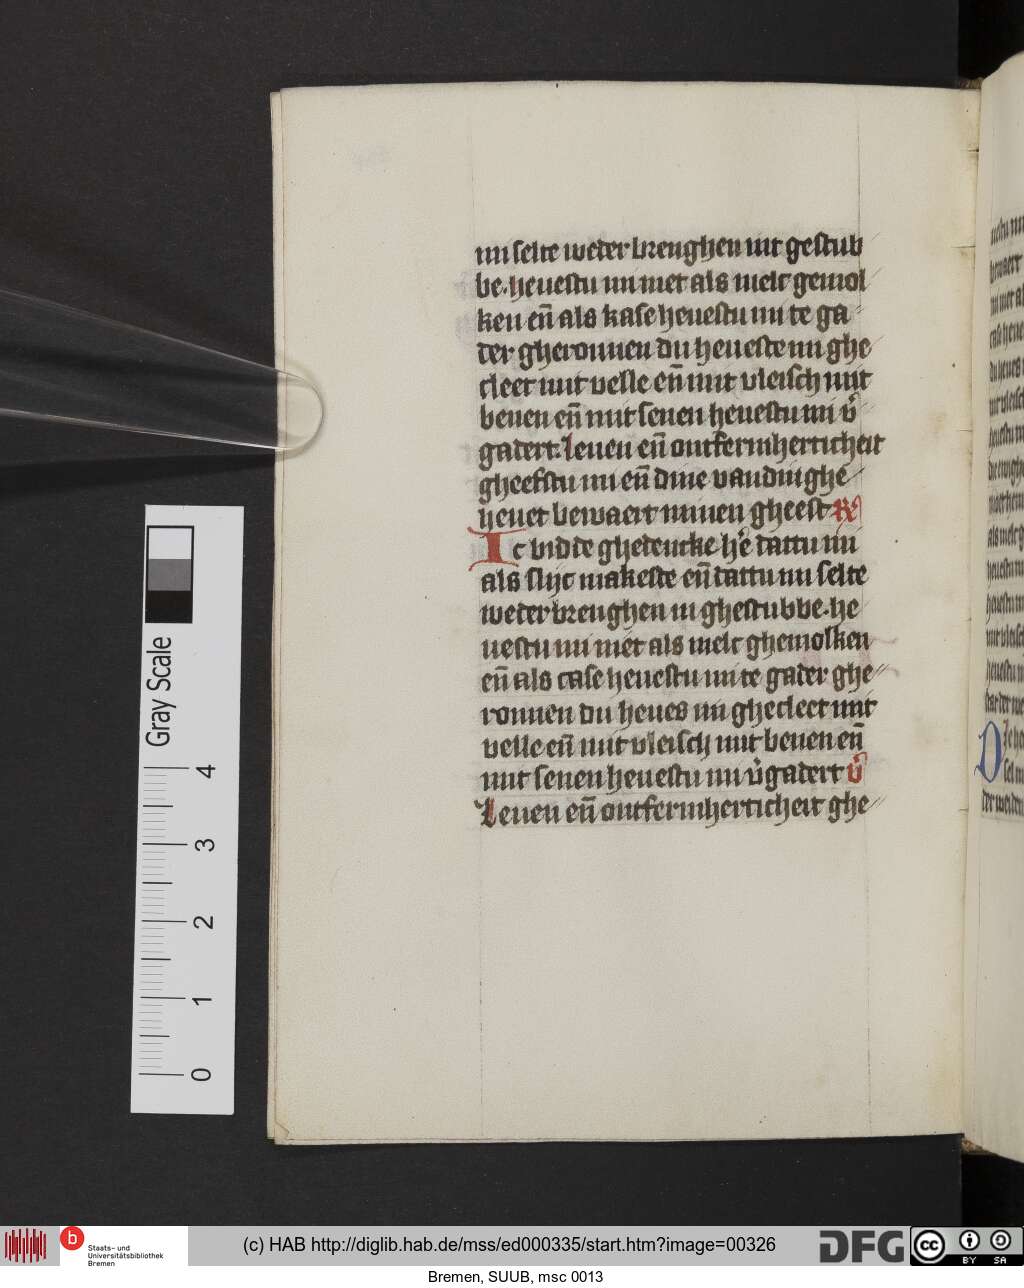 mi selte weder brenghen int gestub
be. heuestu mi niet als melc gemol
ken en̄ als kase heuestu mi te ga
der gheronnen du heueste mi ghe
cleet mit velle en̄ mit vleisch mit
benen en̄ mit senen heuestu mi v̄
gadert. Leuen en̄ ontfermherticheit
gheefstu mi en̄ dine vandinghe
heuet bewaert minen gheest R
Ic bidde ghedencke he᷑ dattu mi
als slijc makeste en̄ dattu mi selte
weder brenghen in ghestubbe. he
uestu mi niet als melc ghemolken
en̄ als case heuestu mi te gader ghe
ronnen du heues mi ghecleet mit
velle en̄ mit vleisch mit benen en̄
mit senen heuestu mi v̄gadert v̄
Leuen en̄ ontfermherticheit ghe
Gray Scale
4
3
2
1
0
b
Staats- und
Universitätsbibliothek
Bremen
(c) HAB http://diglib.hab.de/mss/ed000335/start.htm?image=00326
DFG
cc
BY SA
Bremen, SUUB, msc 0013